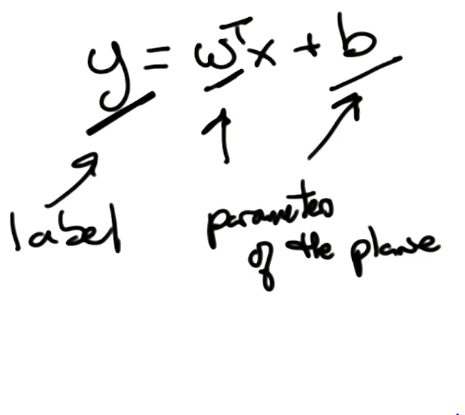 y = w^T x + b
label
parameters
of the plane